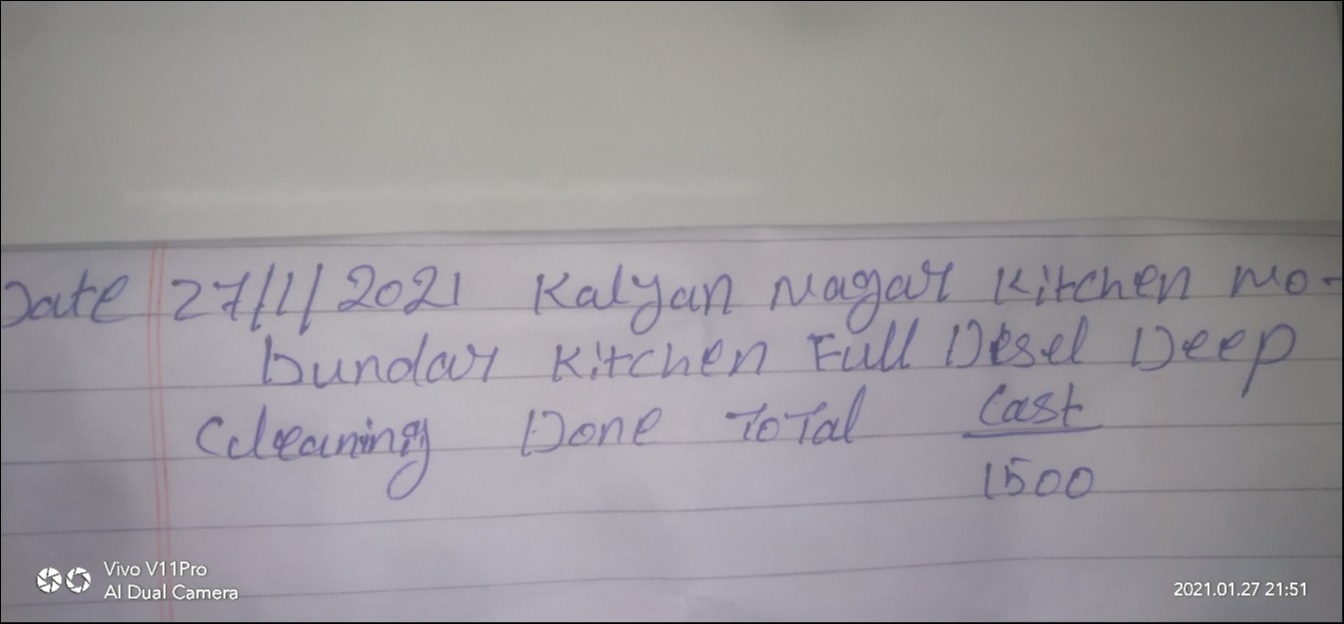 Date 27/1/2021 Kalyan Nagar Kitchen Mo-
Dundar Kitchen Full Desel Deep
Cleaning Done ToTal Cast
1500
Vivo V11Pro
AI Dual Camera
2021.01.27 21:51